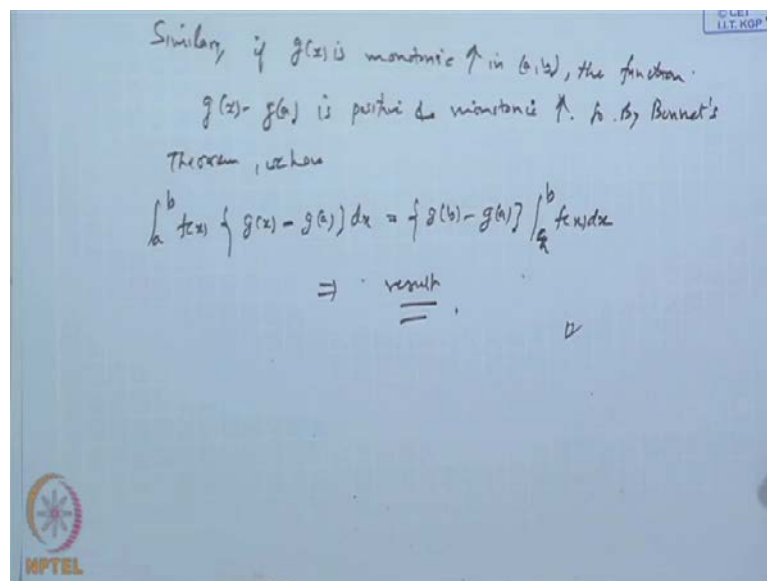 © CET
I.I.T. KGP
Similarly if g(x) is monotonic ↑ in (a,b), the function
g(x) - g(a) is positive & monotonic ↑. So By Bonnet's
Theorem, we have
∫_a^b f(x) { g(x) - g(a) } dx = { g(b) - g(a) } ∫_ξ^b f(x) dx
⇒ result.
NPTEL